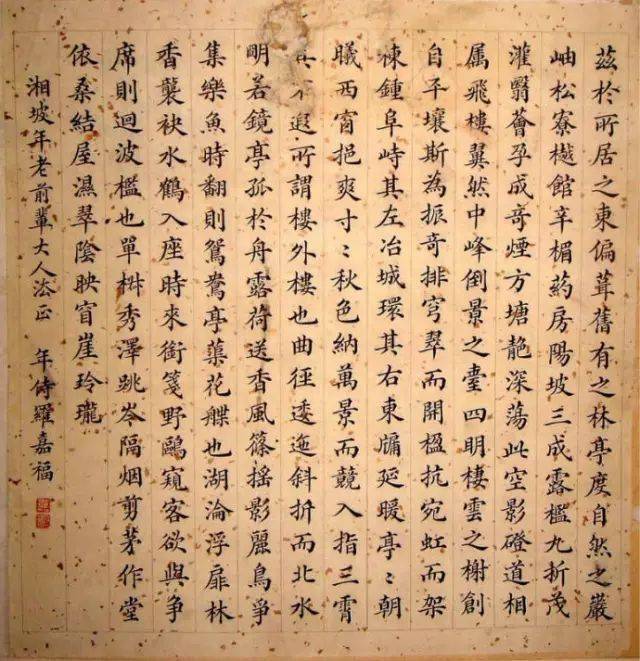 茲於所居之東偏葺舊有之林亭度自然之巖
岫松寮樾館辛楣葯房陽坡三成露檻九折茂
灌翳薈孕成奇煙方塘靘深蕩此空影磴道相
属飛樓翼然中峰倒景之臺四明棲雲之榭創
自平壤斯為振奇排穹翠而開楹抗宛虹而架
棟鍾阜峙其左冶城環其右東牖延暖亭〻朝
曦西窗挹爽寸〻秋色納萬景而競入指三霄
其不遐所謂樓外樓也曲徑逶迤斜折而北水
明若鏡亭孤於舟露荷送香風篠摇影麗鳥爭
集樂魚時翻則鴛鴦亭蕖花也湖淪浮扉林
香襲袂水鶴入座時來銜箋野鷗窺客欲與争
席則迴波檻也單椒秀澤跳岑隔烟剪茅作堂
依桑結屋濕翠陰映窅崖玲瓏
湘坡年老前輩大人法正 年侍羅嘉福